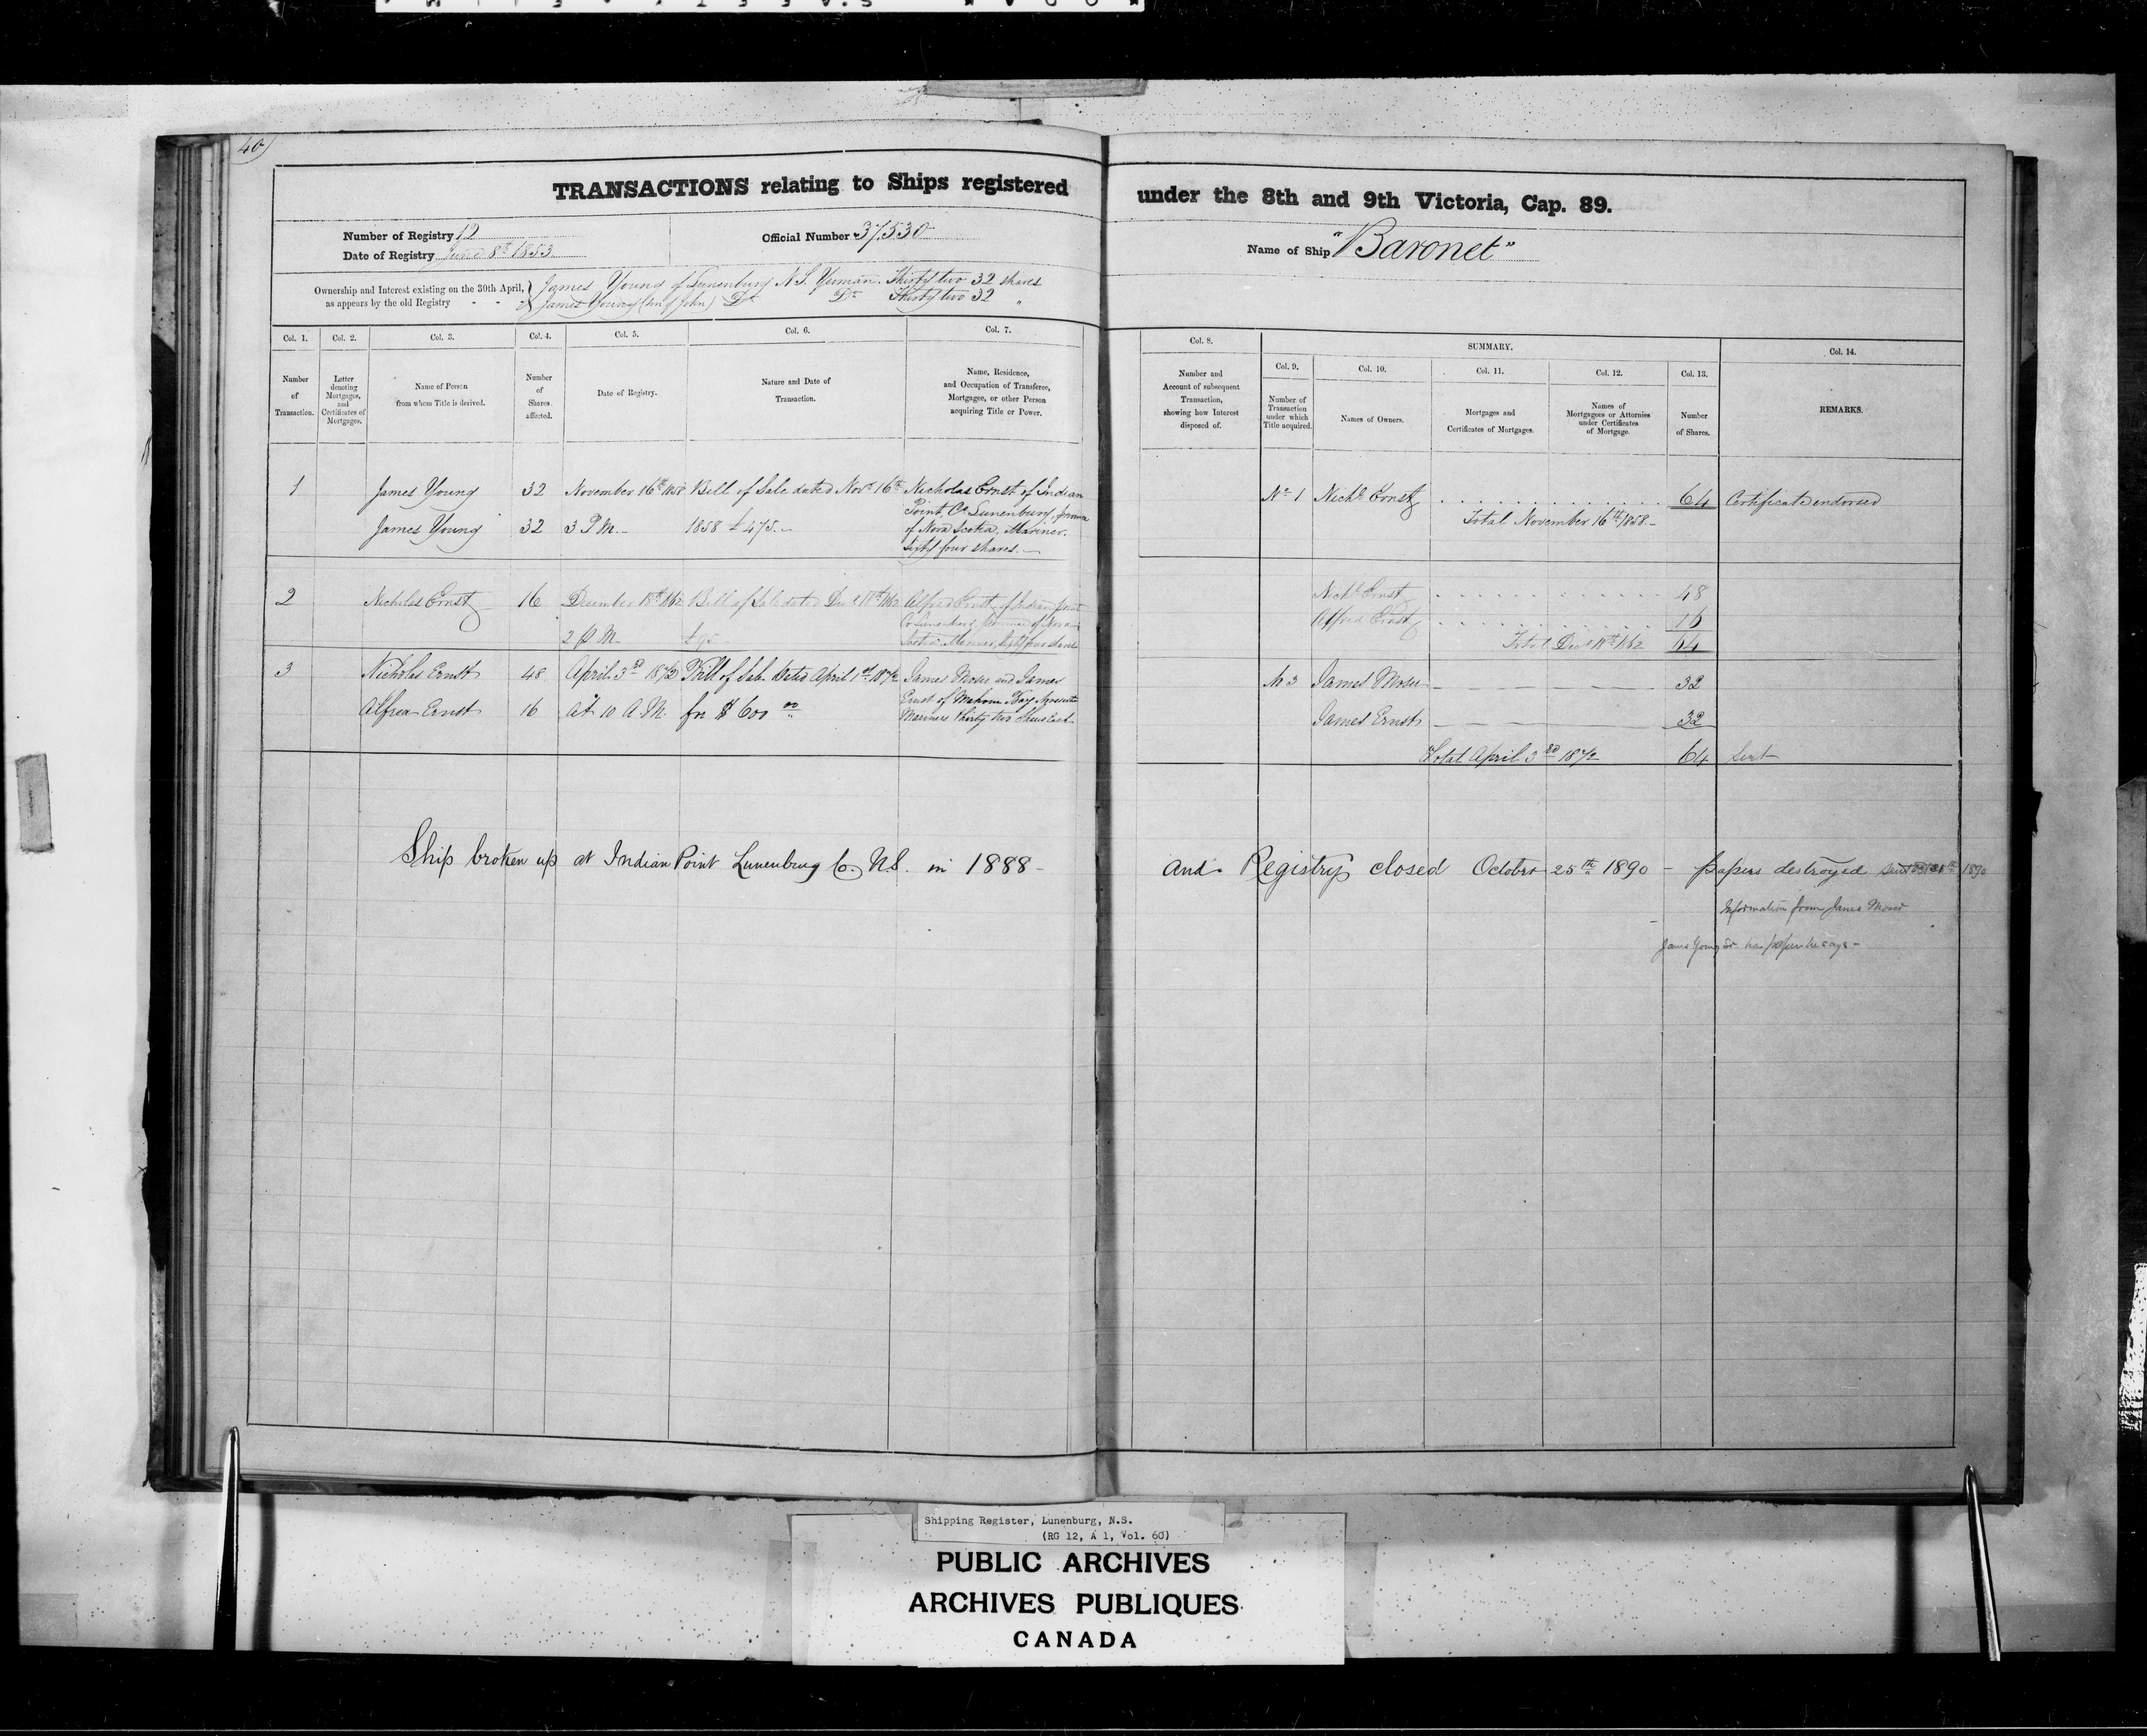 40
TRANSACTIONS relating to Ships registered under the 8th and 9th Victoria, Cap. 89.
Number of Registry 12
Date of Registry June 8th 1853
Official Number 37.530
Name of Ship "Baronet"
Ownership and Interest existing on the 30th April, as appears by the old Registry - -
James Young of Lunenburg N.S. Yeoman. Thirty two 32 shares
& James Young (son of John) Do Do Thirty two 32 "
Col. 1.
Number of Transaction.
Col. 2.
Letter denoting Mortgages, and Certificates of Mortgages.
Col. 3.
Name of Person from whom Title is derived.
Col. 4.
Number of Shares affected.
Col. 5.
Date of Registry.
Col. 6.
Nature and Date of Transaction.
Col. 7.
Name, Residence, and Occupation of Transferee, Mortgagee, or other Person acquiring Title or Power.
Col. 8.
Number and Account of subsequent Transaction, showing how Interest disposed of.
SUMMARY.
Col. 9.
Number of Transaction under which Title acquired.
Col. 10.
Names of Owners.
Col. 11.
Mortgages and Certificates of Mortgages.
Col. 12.
Names of Mortgagees or Attornies under Certificates of Mortgage.
Col. 13.
Number of Shares.
Col. 14.
REMARKS.
1 James Young 32 November 16th 1858 Bill of Sale dated Novr 16th Nicholas Ernst of Indian
James Young 32 3 P.M. 1858 £475.
Point Co Lunenburg,
of Nova Scotia, Mariner.
Sixty four shares.
No 1 Nichs Ernst 64 Certificate endorsed
Total November 16th 1858
2 Nicholas Ernst 16 December 18th 1862 Bill of Sale dated
2 P.M.
Alfred Ernst of Indian Point
Co Lunenburg, Province of Nova
Scotia Mariner,
Nichs Ernst 48
Alfred Ernst 16
Total 64
3 Nicholas Ernst 48 April 3rd 1872 Bill of Sale Dated April 1st 1872
Alfred Ernst 16 At 10 A.M. for $600 00
James Moser and James
Ernst of Mahone Bay
Mariners Thirty two Shares Each
No 3 James Moser 32
James Ernst 32
Total April 3rd 1872 64 Sent
Ship broken up at Indian Point Lunenburg Co. N.S. in 1888 -
and Registry closed October 25th 1890 - papers destroyed 1890
Information from James Moser
James Young Sr has papers he says -
Shipping Register, Lunenburg, N.S.
(RG 12, A 1, Vol. 60)
PUBLIC ARCHIVES
ARCHIVES PUBLIQUES
CANADA